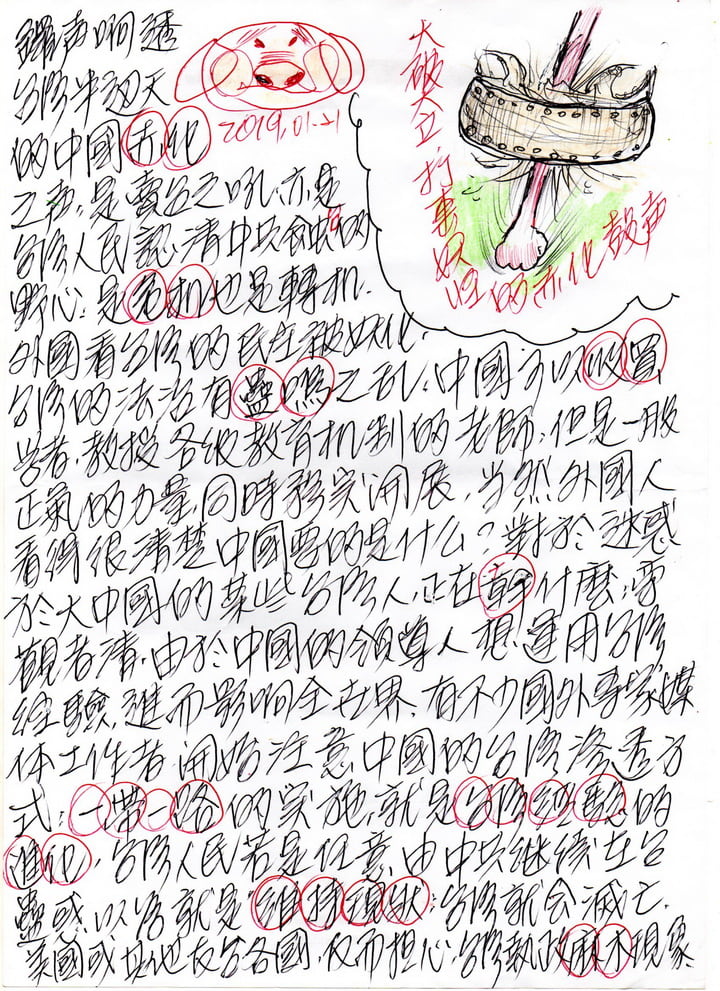 鑼声响透
台湾半边天
的中國赤化
之声,是賣台之吼,亦是
台湾人民認清中共的
野心;是危机也是轉机.
外國看台湾的民主被妖化,
台湾的法治有蠱惑之乱,中國可以收買
学者,教授各级教育机制的老師;但是一股
正氣的力量同時務实開展,当然外國人
看得很清楚中國要的是什么?對於迷惑
於大中國的某些台湾人正在幹什麽,
觀者清,由於中國的領導人想運用台湾
经驗,進而影响全世界,有不少國外專家媒
体工作者開始注意中國的台湾渗透方
式;一带一路的实施,就是台湾经驗的
進化,台湾人民若是任意由中共继续在台
蠱惑,以為就是維持現狀;台湾就会滅亡.
美國或其他友台各國,反而担心台湾執政麻木現象
2019.01.21
大破大立,行事奴性的赤化鼓声